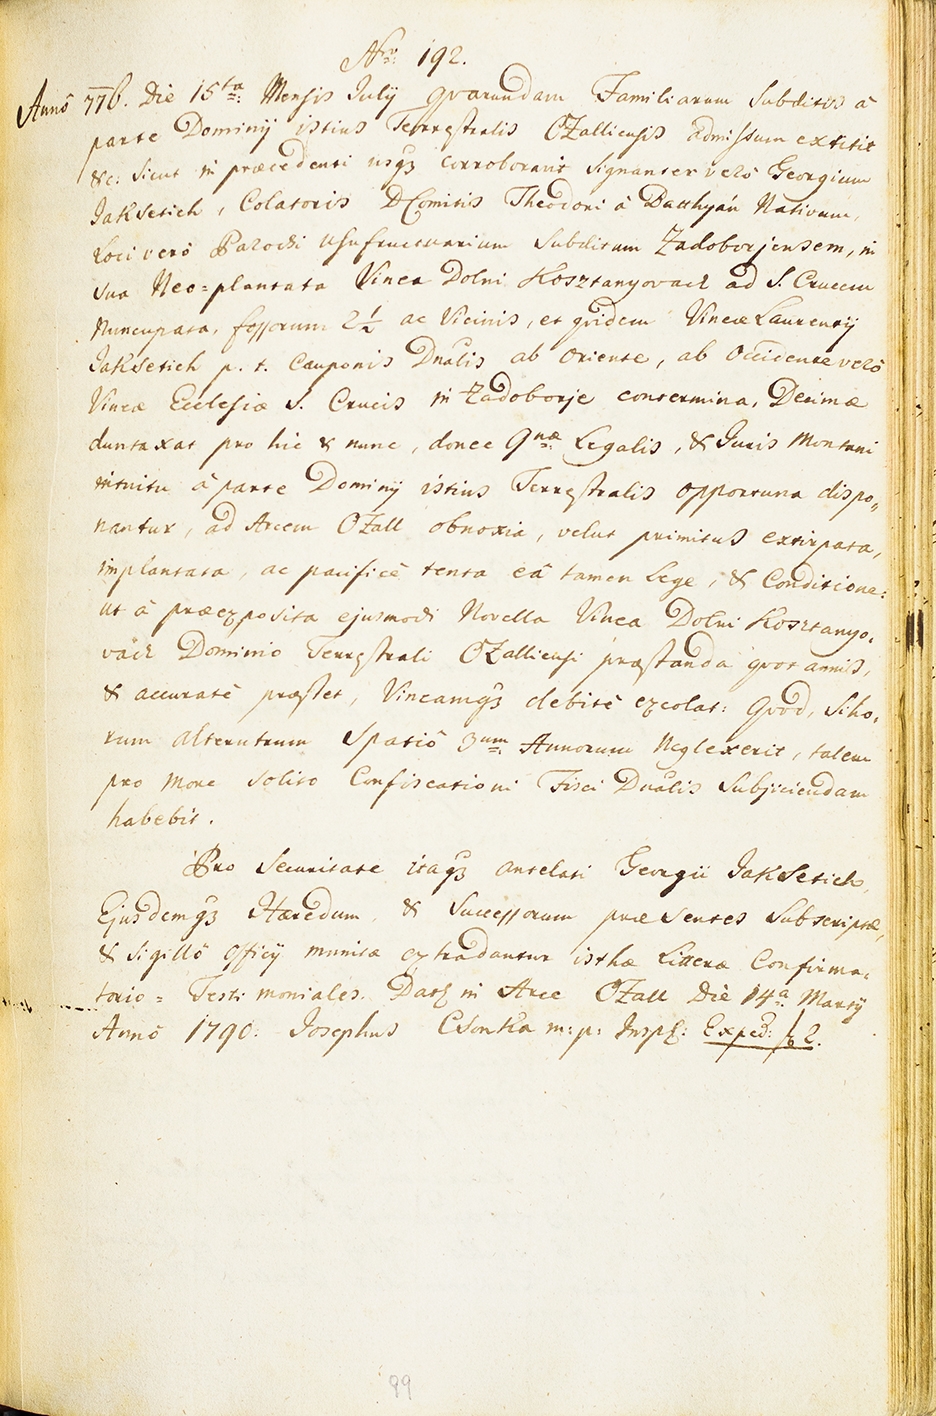 Nro. 192.
Annô 776. Die 15ta Mensis July quarundam Familiarum Subditis â
parte Dominij istius Terrestralis OZalliensis admissum extitit
&c: Sicut in præcedenti usq3 corroboravit Signanter verô Georgium
JakSetich, Colatoris DComitis Theodori â Batthyán Nativum,
Loci verô Parochi Usufructuarium Subditum Zadoborjensem, in
Sua Neo=plantata Vinea Dolni Kosztanyovach ad S. Crucem
Nuncupata, fossorum 2½ ac Vicinis, et quidem Vineæ Laurentij
JakSetich p. t. Cauponis Dnalis ab oriente, ab Occidente verô
Vineæ Ecclesiæ S. Crucis in Zadoborje contermina, Decimæ
duntaxat pro hic & nunc, donec 9næ Legalis, & Juris Montani
intuitu â parte Dominij istius Terrestralis opportuna dispo„
nantur, ad Arcem OZall obnoxia, velut primitus extirpata,
implantata, ac pacificê tenta eâ tamen Lege, & Conditione:
ut â præexposita ejusmodi Novella Vinea Dolni Kosztanyo,
vách Dominio Terrestrali OZalliensi præstanda quot annis,
& accuratê præstet, Vineamq3 debitê excolat: Quod, Siho,
rum alterutrum Spatiô 3um Annorum Neglexerit, talem
pro more Solito Confiscationi Fisci Dnalis Subjiciendam
habebit.
Pro Securitate itaq3 antelati Georgii JakSetich,
Ejusdemq3 Hæredum, & Successorum præsentes Subscriptæ,
& Sigillô Officij munitæ extradantur isthæ Litteræ Confirma,
torio = Testimoniales. Dat in Arce OZall Die 14a Martij
Annô 1790. Josephus Csonka m: p: Insp: Exped: f 2.
99